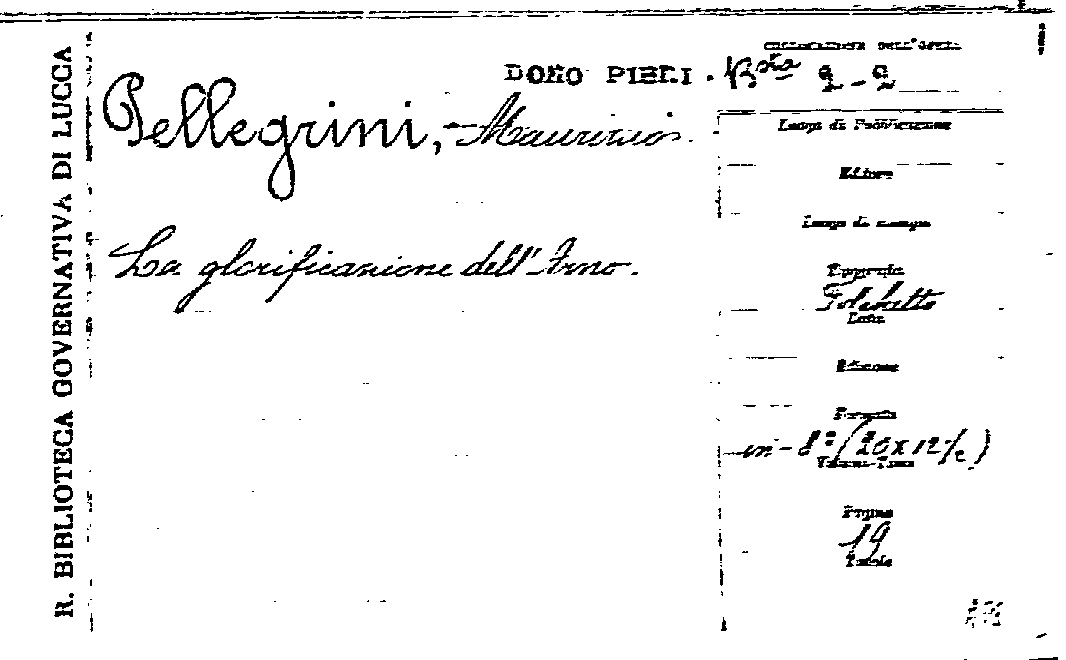 R. BIBLIOTECA GOVERNATIVA DI LUCCA
COLLOCAZIONE DELL'OPERA
DONO PIERI . B.sta 2-2
Pellegrini, - Maurizio.
La glorificazione dell'Arno.
Luogo di Pubblicazione
Editore
Luogo di stampa
Tipografia
Data
Edizione
Formato
in-8º (20 x 12/2)
Volumi-Tomi
Pagine
19
Tavole